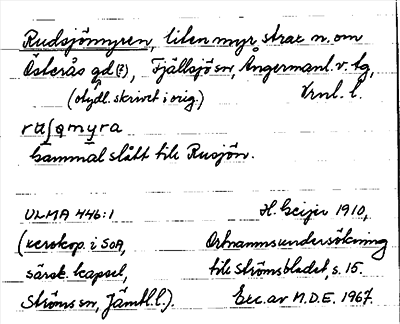 Rudsjömyren, liten myr strax n. om
Österås gd (?), Fjällsjö sn, Ångermanl. v. tg,
(otydl. skrivet i orig.) Vrnl. l.
ruʃømyra
Gammal slått till Rusjön.
ULMA 446:1 H. Geijer 1910,
(xerokop. i SOA, Ortnammsundersökning
särsk. kapsel, till Strömsbladet, s. 15.
Ströms sn, Jämtl. l.). Exc. av M.D.E. 1967.